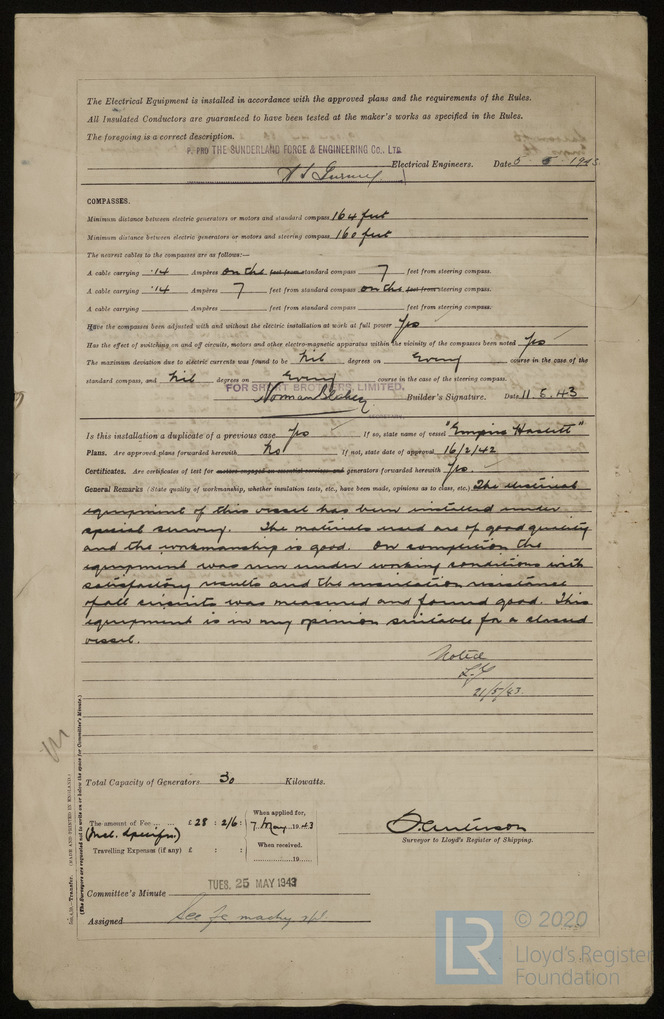 The Electrical Equipment is installed in accordance with the approved plans and the requirements of the Rules.
All Insulated Conductors are guaranteed to have been tested at the maker's works as specified in the Rules.
The foregoing is a correct description.
THE SUNDERLAND FORGE & ENGINEERING CO., LTD.
Electrical Engineers. Date 5 5 1943
COMPASSES.
Minimum distance between electric generators or motors and standard compass 164 feet
Minimum distance between electric generators or motors and steering compass 160 feet
The nearest cables to the compasses are as follows:—
A cable carrying .14 Ampères on the feet from standard compass 7 feet from steering compass.
A cable carrying .14 Ampères 7 feet from standard compass on the feet from steering compass.
A cable carrying Ampères feet from standard compass feet from steering compass.
Have the compasses been adjusted with and without the electric installation at work at full power Yes
Has the effect of switching on and off circuits, motors and other electro-magnetic apparatus within the vicinity of the compasses been noted Yes
The maximum deviation due to electric currents was found to be Nil degrees on Every course in the case of the
standard compass, and Nil degrees on Every course in the case of the steering compass.
FOR SHORT BROTHERS, LIMITED.
Builder's Signature. Date 11.5.43
Is this installation a duplicate of a previous case Yes If so, state name of vessel "Empire Hazlitt"
Plans. Are approved plans forwarded herewith No If not, state date of approval 16/2/42
Certificates. Are certificates of test for motors engaged on essential services and generators forwarded herewith Yes.
General Remarks (State quality of workmanship, whether insulation tests, etc., have been made, opinions as to class, etc.) The electrical
equipment of this vessel has been installed under
special survey. The materials used are of good quality
and the workmanship is good. On completion the
equipment was run under working conditions with
satisfactory results and the insulation resistance
of all circuits was measured and found good. This
equipment is in my opinion suitable for a classed
vessel.
Noted
21/5/43
Total Capacity of Generators 30 Kilowatts.
The amount of Fee ... ... £ 28 : 2/6 : When applied for,
7 May 1943
(Incl. Specifn)
When received.
Travelling Expenses (if any) £ : : 19
Surveyor to Lloyd's Register of Shipping.
TUES. 25 MAY 1943
Committee's Minute
Assigned See
Transfer. (MADE AND PRINTED IN ENGLAND.)
(The Surveyors are requested not to write on or below the space for Committee's Minute.)
LR
© 2020
Lloyd's Register
Foundation